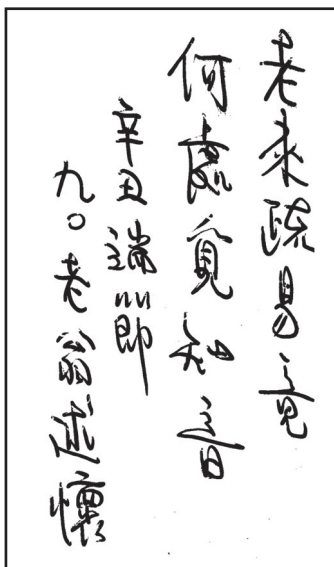 老來疏易竟
何處覓知音
辛丑端節
九〇老翁述懷